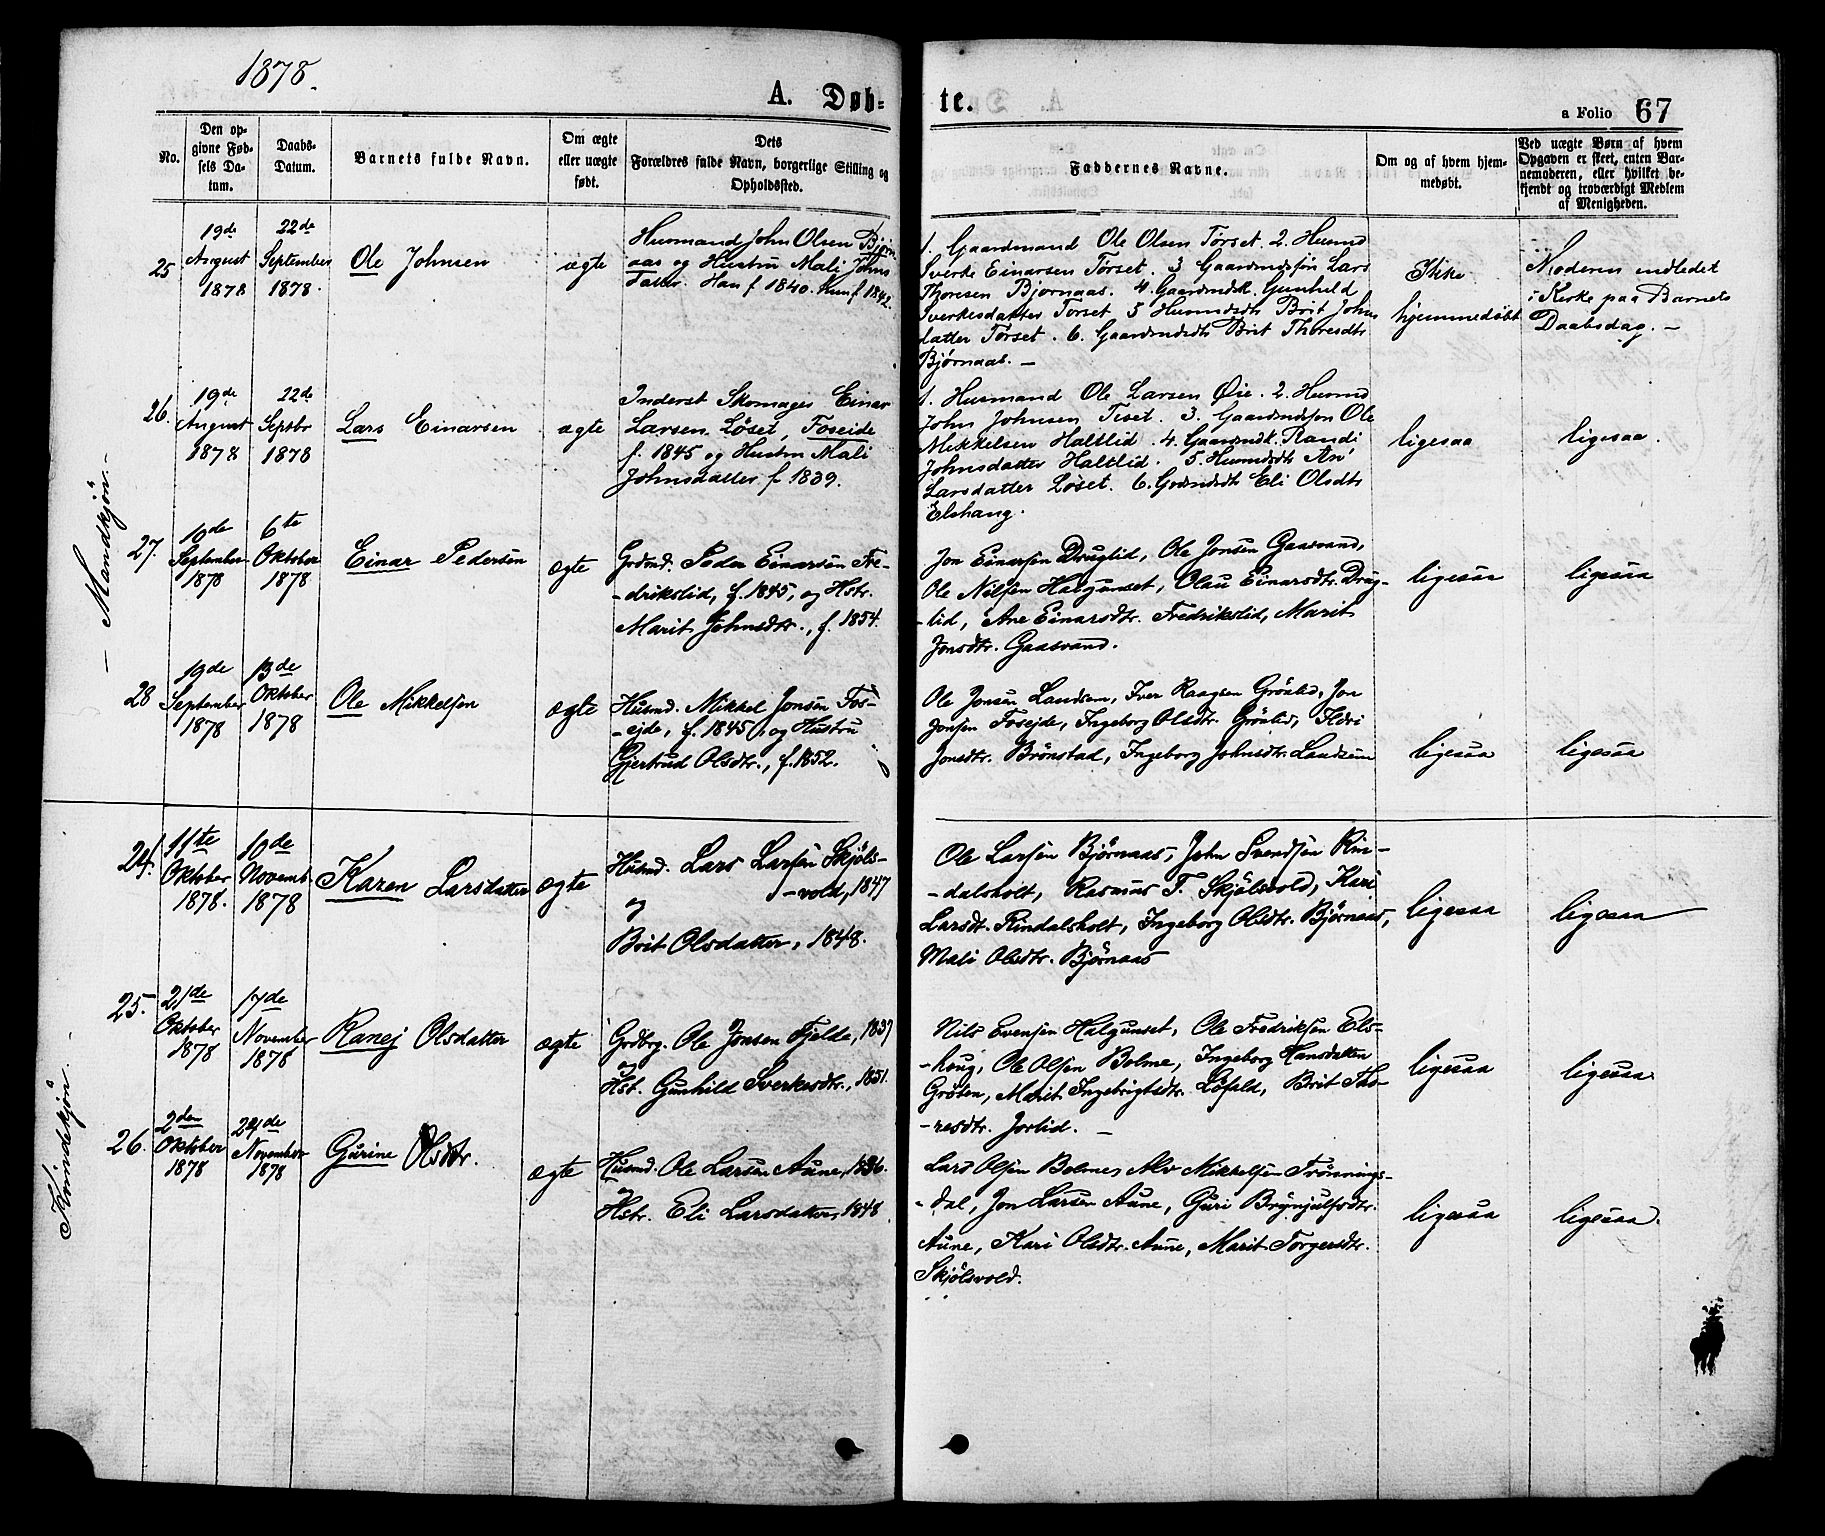 1878.
A. Døb=
te.
a Folio 67
No.
Den op-
givne Fød-
sels Da-
tum.
Daabs-
Datum.
Barnets fulde Navn.
Om ægte
eller uægte
født.
Dets
Forældres fulde Navn, borgerlige Stilling og
Opholdssted.
Faddernes Navne.
Om og af hvem hjem-
medøbt.
Ved uægte Børn af hvem
Opgaven er skeet, enten Bar-
nemoderen, eller hvilket be-
kjendt og troværdigt Medlem
af Menigheden.
— Mandkjön. —
25
19de
August
1878
22de
September
1878.
Ole Johnsen
ægte
Husmand John Olsen Bjørn
aas og Hustru Mali Johns
datter. Han f 1840. Hun f 1842.
1. Gaardmand Ole Olsen Tørset. 2. Husmd
Sverke Einarsen Tørset. 3 Gaardmdsøn Lars
Thoresen Bjørnaas. 4. Gaardmdk. Gunhild
Sverkesdatter Tørset 5 Husmdsdtr Brit Johns
datter Tørset. 6. Gaardmdsdtr Brit Thoresdtr
Bjørnaas. —
Ikke
hjemmedøbt
Moderen indledet
i Kirke paa Barnets
Daabsdag. —
26.
19de
August
1878
22de
Septbr
1878
Lars Einarsen
ægte
Inderst Skomager Einar
Larsen Løset, Foseide
f. 1845 og Hustru Mali
Johnsdatter f 1839.
1. Husmand Ole Larsen Øie. 2. Husmd
John Johnsen Tiset. 3. Gaardmdsøn Ole
Mikkelsen Haltlid. 4. Gaardmdk. Randi
Johnsdatter Haltlid. 5. Husmdsdtr An
Larsdatter Løset. 6. Grdmdsdtr Eli Olsdtr
Elshaug.
ligesaa
ligesaa.
27.
10de
September
1878
6te
Oktober
1878
Einar Pedersen
ægte
Grdmd. Peder Einarsen Fre-
-drikslid, f. 1845, og Hstr.
Marit Johnsdtr., f. 1854.
Jon Einarsen Druglid, Ole Jonsen Gaasvand,
Ole Nilsen Halgunset, Olau Einarsdtr. Drug-
-lid, Ane Einarsdtr. Fredrikslid, Marit
Jonsdtr. Gaasvand.
ligesaa
ligesaa
28
19de
September
1878
13de
Oktober
1878
Ole Mikkelsen
ægte
Husmd. Mikkel Jonsen Fos-
-ejde, f. 1845, og Hustru
Gjertrud Olsdtr., f. 1852.
Ole Jonsen Landsem, Iver Kaagsen Grönlid, Jon
Jonsen Fosejde, Ingeborg Olsdtr. Grönlid, Ildri
Jonsdtr. Brönstad, Ingeborg Johnsdtr. Landsem
ligesaa
ligesaa
Kvindekjön.
24.
11te
Oktober
1878.
10de
Novemb.
1878
Karen Larsdatter
ægte
Husmd. Lars Larsen Skjöls-
-vold, 1847
og
Brit Olsdatter, 1848.
Ole Larsen Bjørnaas, John Svendsen Rin-
-dalsholt, Rasmus T. Skjölsvold, Kari
Larsdt. Rindalsholt, Ingeborg Olsdtr. Bjørnaas,
Mali Olsdtr. Bjørnaas
ligesaa
ligesaa
25.
21de
Oktober
1878
17de
November
1878
Ranej Olsdatter
ægte
Grdbrg. Ole Jonsen Fjelde, 1837
og
Hst. Gunhild Sverkesdtr., 1851.
Nils Evensen Halgunset, Ole Fredriksen Els-
-haug, Ole Olsen Bolme, Ingeborg Hansdatter
Gröten, Marit Ingebrigtsdtr. Löfald, Brit Tho-
-resdtr. Jorlid. —
ligesaa
ligesaa.
26.
2den
Oktober
1878
24de
November
1878
Gurine Olsdtr.
ægte
Husmd. Ole Larsen Aune, 1836.
og
Hstr. Eli Larsdatter, 1848
Lars Olsen Bolme, Alv Mikkelsen Trönnings-
-dal, Jon Larsen Aune, Guri Brynjulfsdtr.
Aune, Kari Olsdtr. Aune, Marit Torgersdtr.
Skjölsvold.
ligesaa
ligesaa.